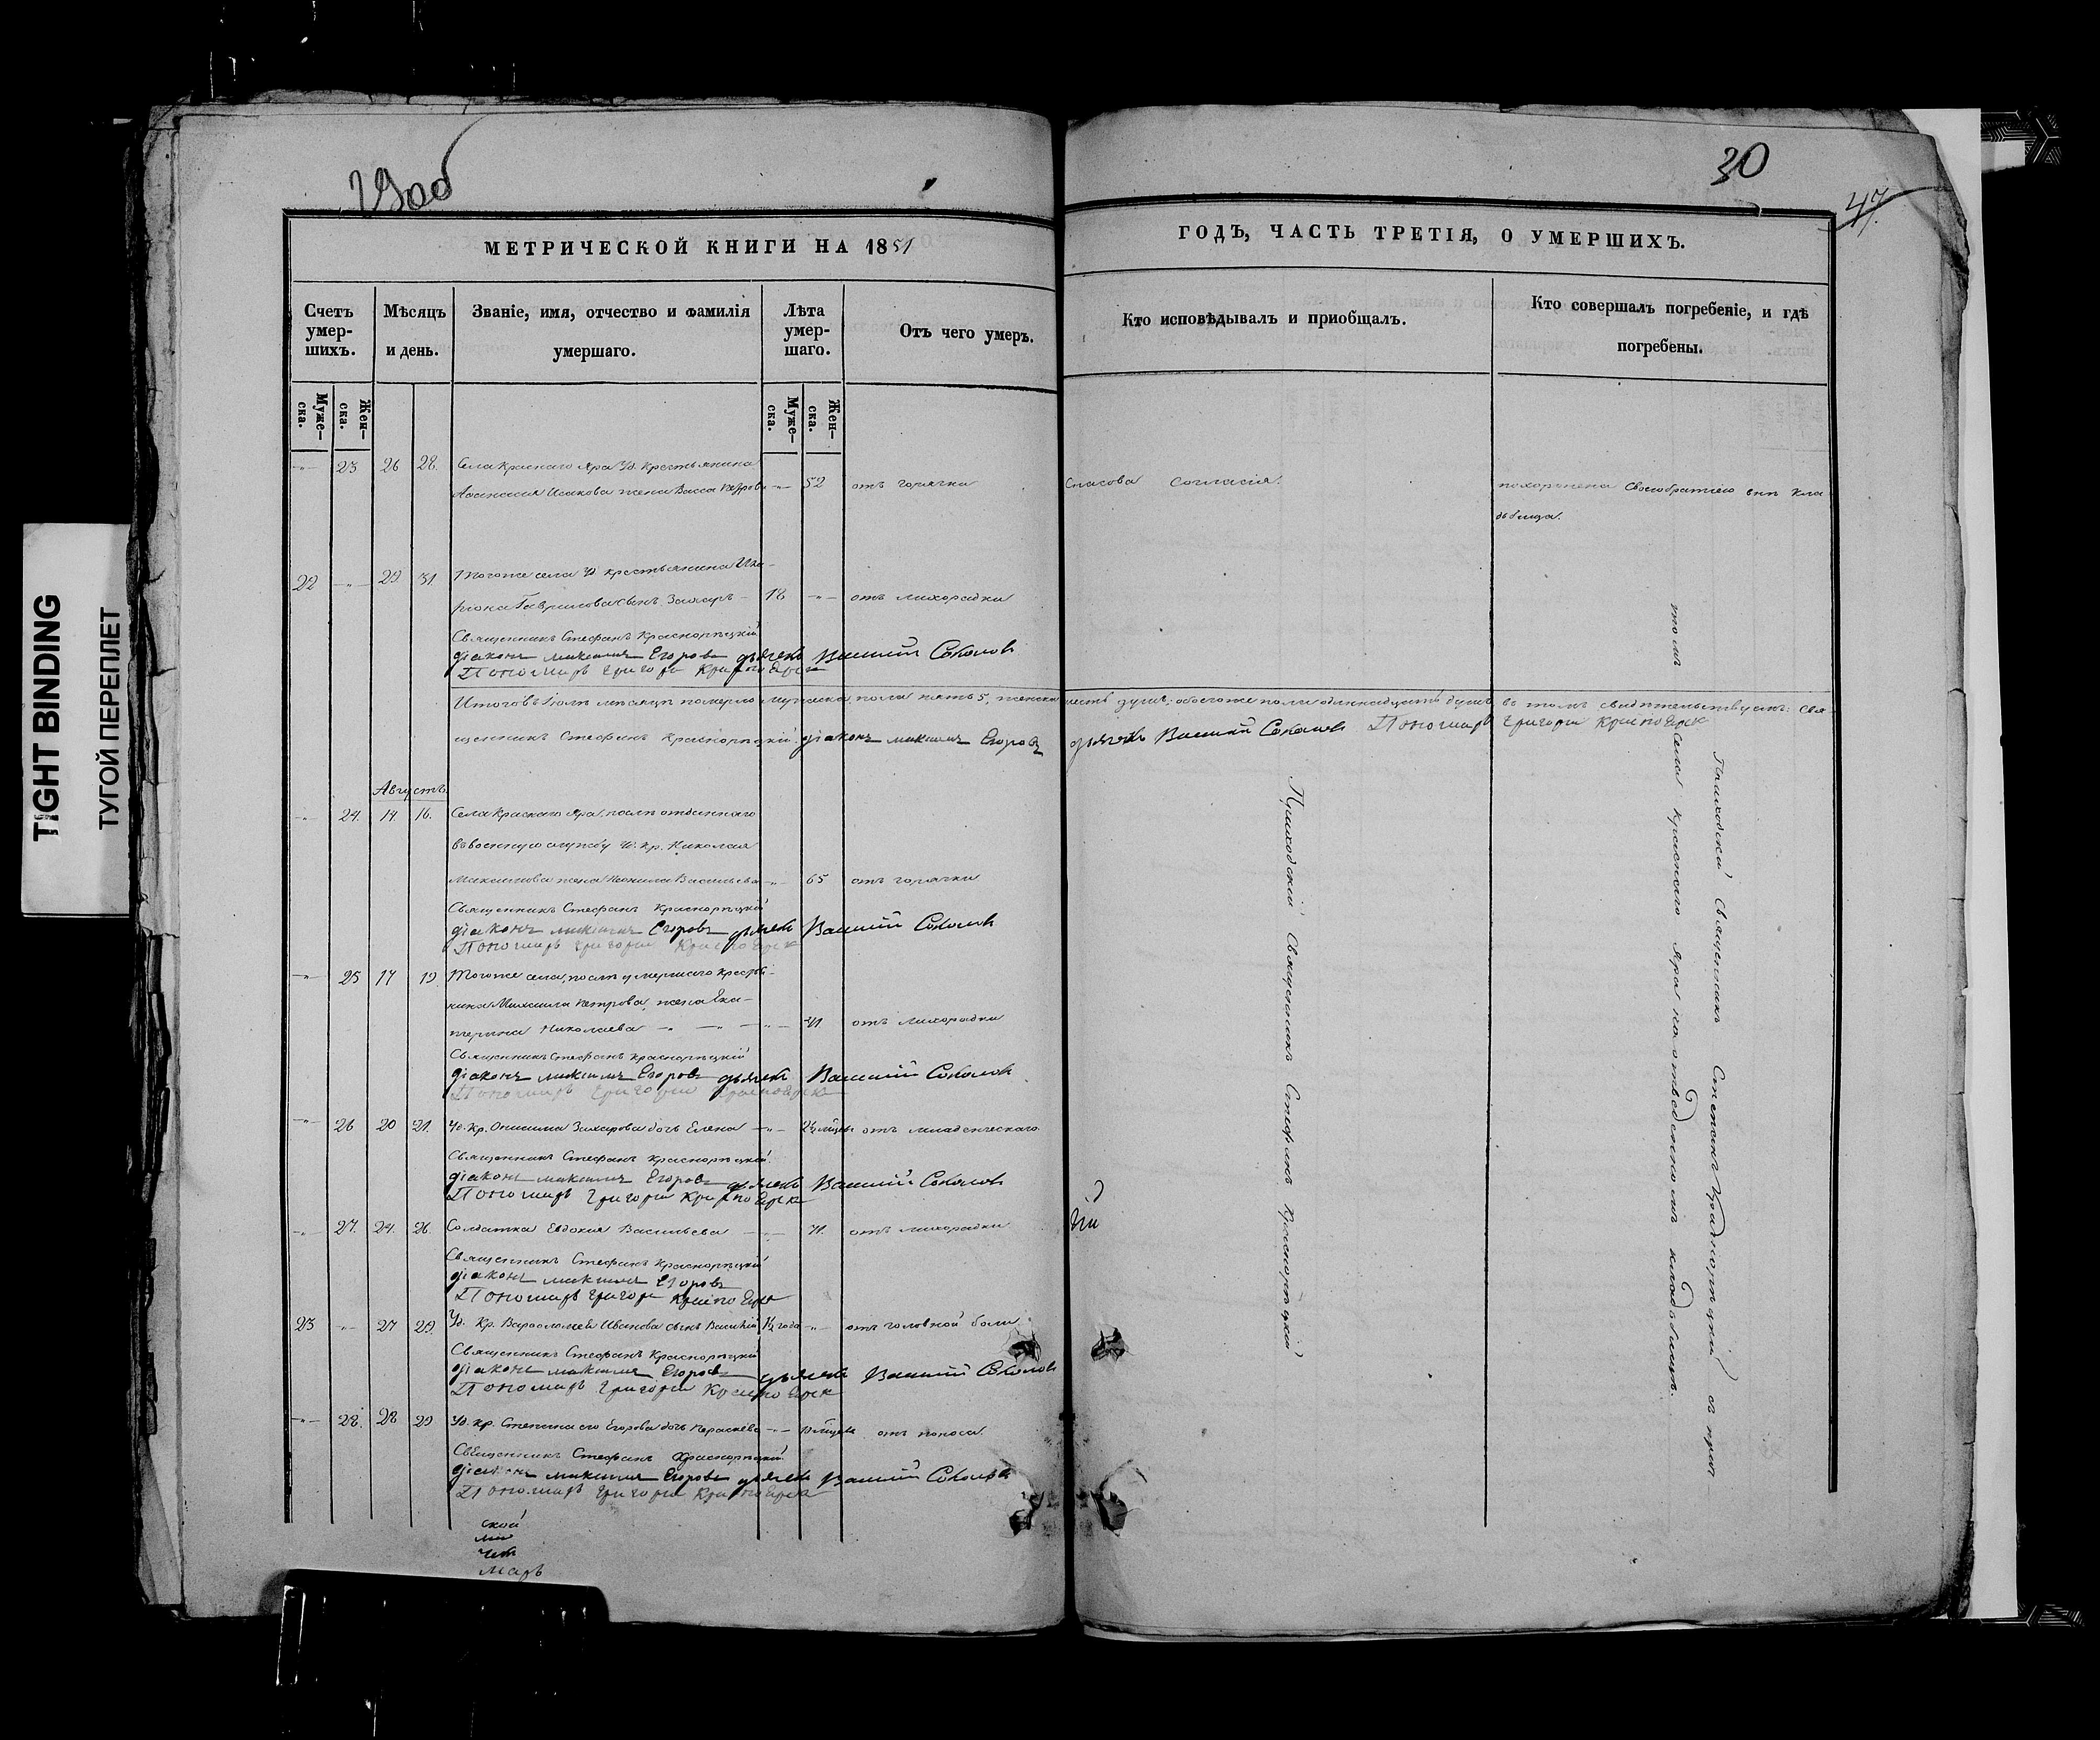 29об
30
47.
МЕТРИЧЕСКОЙ КНИГИ НА 1851
ГОДЪ, ЧАСТЬ ТРЕТІЯ, О УМЕРШИХЪ.
Счетъ умер-шихъ.
Мѣсяцъ и день.
Званіе, имя, отчество и фамилія умершаго.
Лѣта умер-шаго.
Отъ чего умеръ.
Кто исповѣдывалъ и приобщалъ.
Кто совершалъ погребеніе, и гдѣ погребены.
Муже-ска.
Жен-ска.
Муже-ска.
Жен-ска.
-"- 23 26 28. Села Краснаго Яра Уд. крестьянина
Исакова жена Васса Петрова -"- 52 отъ горячки Спасова Согласія. похоронена Своеобратіею внѣ кла
дбища.
22 -"- 29. 31. Тогоже села Уд. крестьянина
Гаврилова сынъ Захаръ - 18 -"- отъ лихорадки
Священникъ Стефанъ Краснорѣцкій
діаконъ максимъ Егоровъ дьячекъ Василій Соколовъ
Пономарь Григорий Красноярск
Итого въ Іюлѣ мѣсяцѣ померло мужеска пола пять 5, женска шесть душъ; обоегоже пола одиннадцать душъ, въ томъ свидѣтельствуемъ: Свя-
щенникъ Стефанъ Краснорѣцкій. діаконъ максимъ Егоровъ дьячекъ Василій Соколовъ Пономарь Григорий Красноярск
Августъ.
-"- 24. 14 16. Села Краснаго Яра, послѣ отданнаго
въ военную службу Уд. Кр. Николая
Максимова жена Неонила Васильева -"- 65 отъ горячки
Священникъ Стефанъ Краснорѣцкій
діаконъ максимъ Егоровъ дьячекъ Василій Соколовъ
Пономарь Григорий Красноярск
-"- 25 17 19. Тогоже села, послѣ умершаго крестья-
нина Михаила Петрова, жена Ека-
терина Николаева -"- отъ лихорадки
Священникъ Стефанъ Краснорѣцкій
діаконъ максимъ Егоровъ дьячекъ Василій Соколовъ
Пономарь Григорий Красноярск
-"- 26 20 21. Уд. Кр. Онисима Захарова дочь Елена -"- отъ младенческаго
Священникъ Стефанъ Краснорѣцкій.
діаконъ максимъ Егоровъ дьячекъ Василій Соколовъ
Пономарь Григорий Красноярск
-"- 27. 24. 26. Солдатка Евдокия Васильева -"- 71. отъ лихорадки
Священникъ Стефанъ Краснорѣцкій
діаконъ максимъ Егоровъ
Пономарь Григорий Красноярск
23 -"- 27 29. Уд. Кр. Варѳоломея Иванова сынъ Василій 1½ года -"- отъ головной боли
Священникъ Стефанъ Краснорѣцкій
діаконъ максимъ Егоровъ дьячекъ Василій Соколовъ
Пономарь Григорий Красноярск
-"- 28. 28 29 Уд. Кр. Егорова дочь Параскева -"- отъ поноса
Священникъ Стефанъ Краснорѣцкій.
діаконъ максимъ Егоровъ дьячекъ Василій Соколовъ
Пономарь Григорий Красноярск
ской
чекъ
марь
Приходскій Священникъ Стефанъ Краснорѣцкій
Приходскій Священникъ Стефанъ Краснорѣцкій съ прич-
томъ села Краснаго Яра на отведенномъ кладбищѣ.
TIGHT BINDING
ТУГОЙ ПЕРЕПЛЕТ